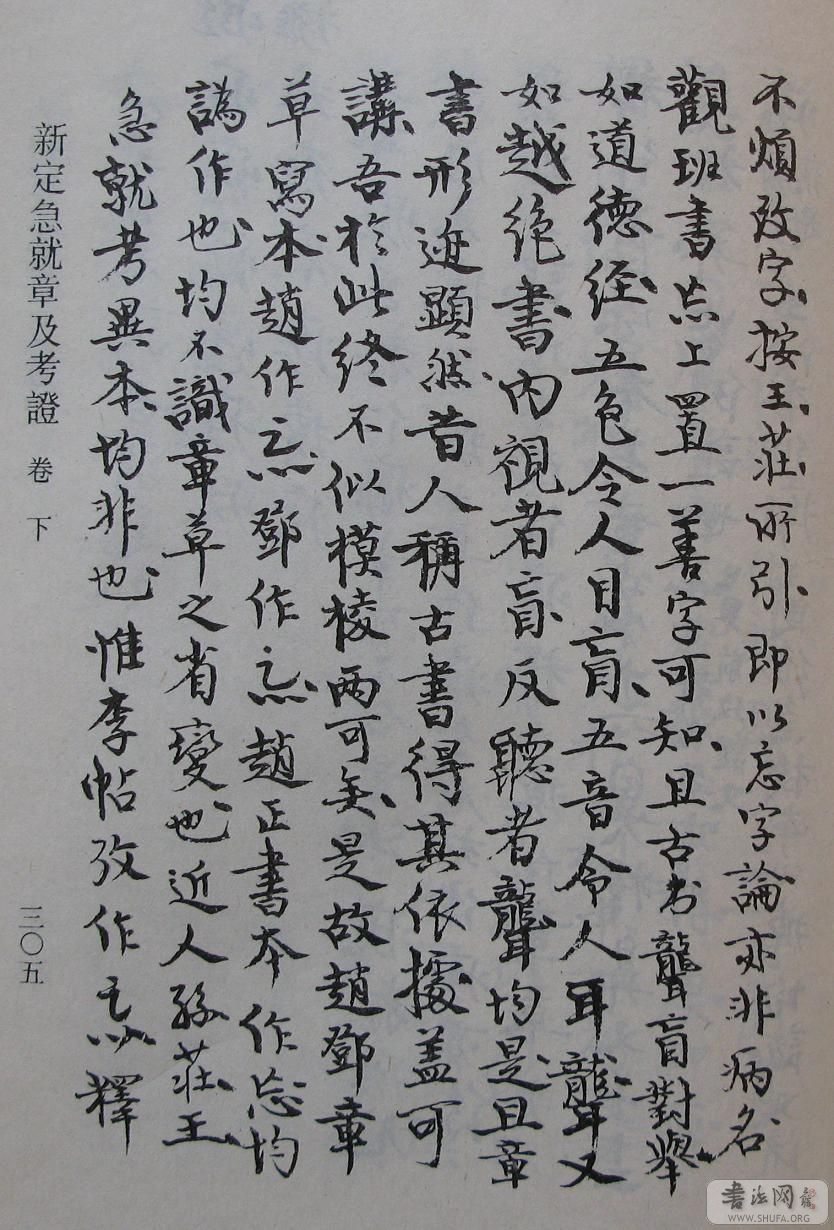 不煩改字、按王、莊、所引、即以忘字論亦非病名
觀班書忘上置一善字可知、且古书聾盲對舉、
如道德經、五色令人目盲、五音令人耳聾、又
如越絶書、內視者盲、反聽者聾、均是、且章
書形迹顯然、昔人稱古書得其依據、盖可
講、吾於此終不似模棱兩可矣、是故趙鄧章
草寫本、趙作忘、鄧作忘、趙正書本作忘、均
譌作也、均不識章草之省變也、近人孫、莊、王、
急就考異本、均非也、惟李帖攷作釋
新定急就章及考證 卷下
三〇五
書法网
WWW.SHUFA.ORG